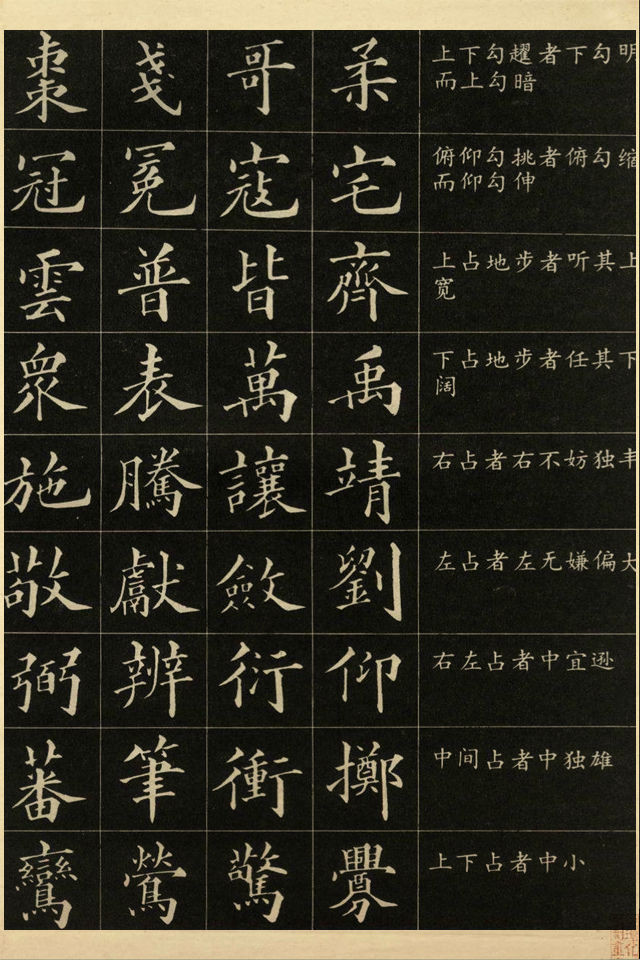 上下勾趯者下勾明
而上勾暗
柔哥戔棗
俯仰勾挑者俯勾缩
而仰勾伸
宅寇冕冠
上占地步者听其上
宽
齊皆普雲
下占地步者任其下
阔
禹萬表衆
右占者右不妨独丰
靖讓騰施
左占者左无嫌偏大
劉斂獻敬
右左占者中宜逊
仰衍辨弼
中间占者中独雄
擲衝筆蕃
上下占者中小
釁驚鶯鸞